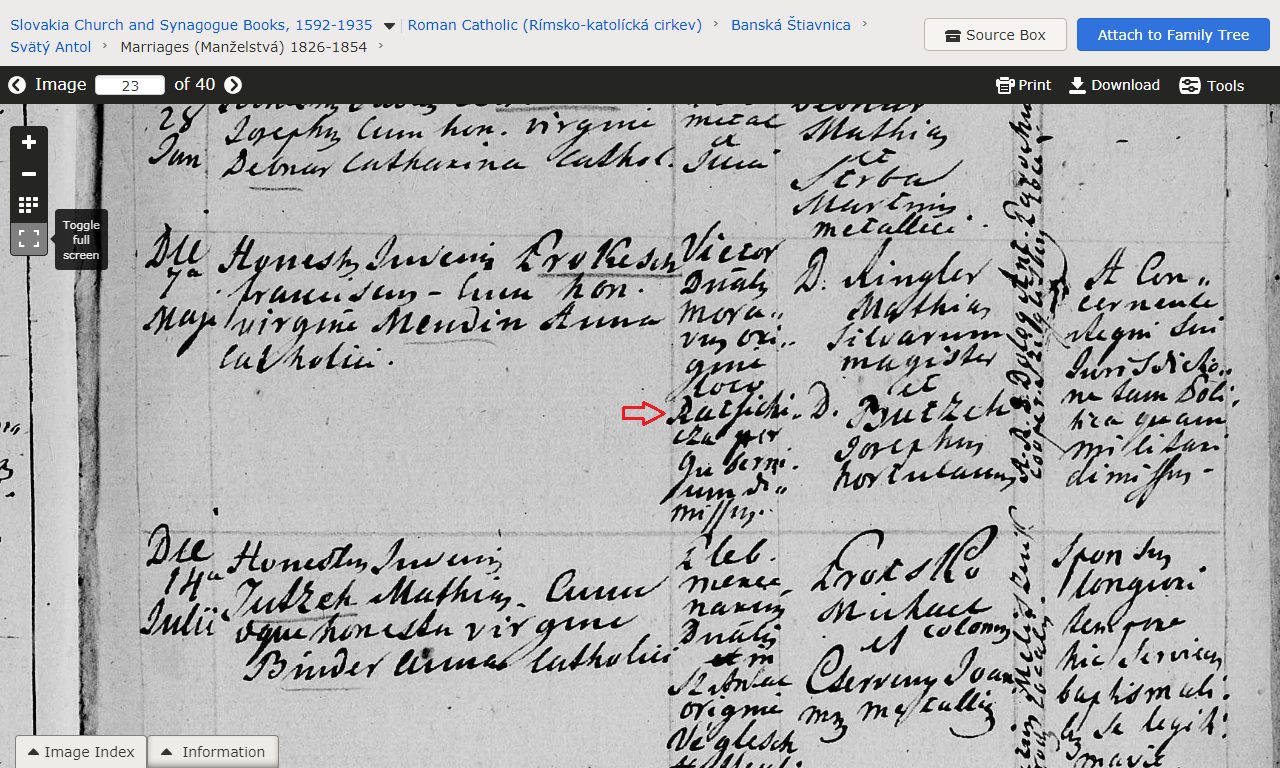 Slovakia Church and Synagogue Books, 1592-1935 Roman Catholic (Rímsko-katolícká cirkev) › Banská Štiavnica ›
Svätý Antol › Marriages (Manželstvá) 1826-1854 ›
Source Box
Attach to Family Tree
Image 23 of 40
Print
Download
Tools
Toggle
full
screen
28
Jun
Josephus Cum hon. virgine
Debnar Catharina Cathol.
metal
et
Mathias
et
Sterba
Martinus
metallici.
Die
7a
Maji
Honestus Juvenis Prokesch
Franciscus - Cum hon.
virgine Mendin Anna
Catholici.
Victor
Dnalis
mora„
vus ori„
gine
loco
cza per
guberni„
um di„
missus.
D. Ringler
Mathias
silvarum
magister
et
D. Butzek
Josephus
hortulanus
A Con„
cernente
Regni sui
Jurisdictio„
ne tam Poli„
tica quam
militari
dimissus -
Die
14a
Julii
Honestus Juvenis
Jutzek Mathias. Cum
aque honesta virgine
Binder Anna Catholici
Dnalis
et in
origine
Proksko
Michael
et colonus
Cserveny Joan
nes metallicus
Sponsus
longiori
tempore
hic serviens
baptismali„
bus se legit„
mavit
Image Index
Information